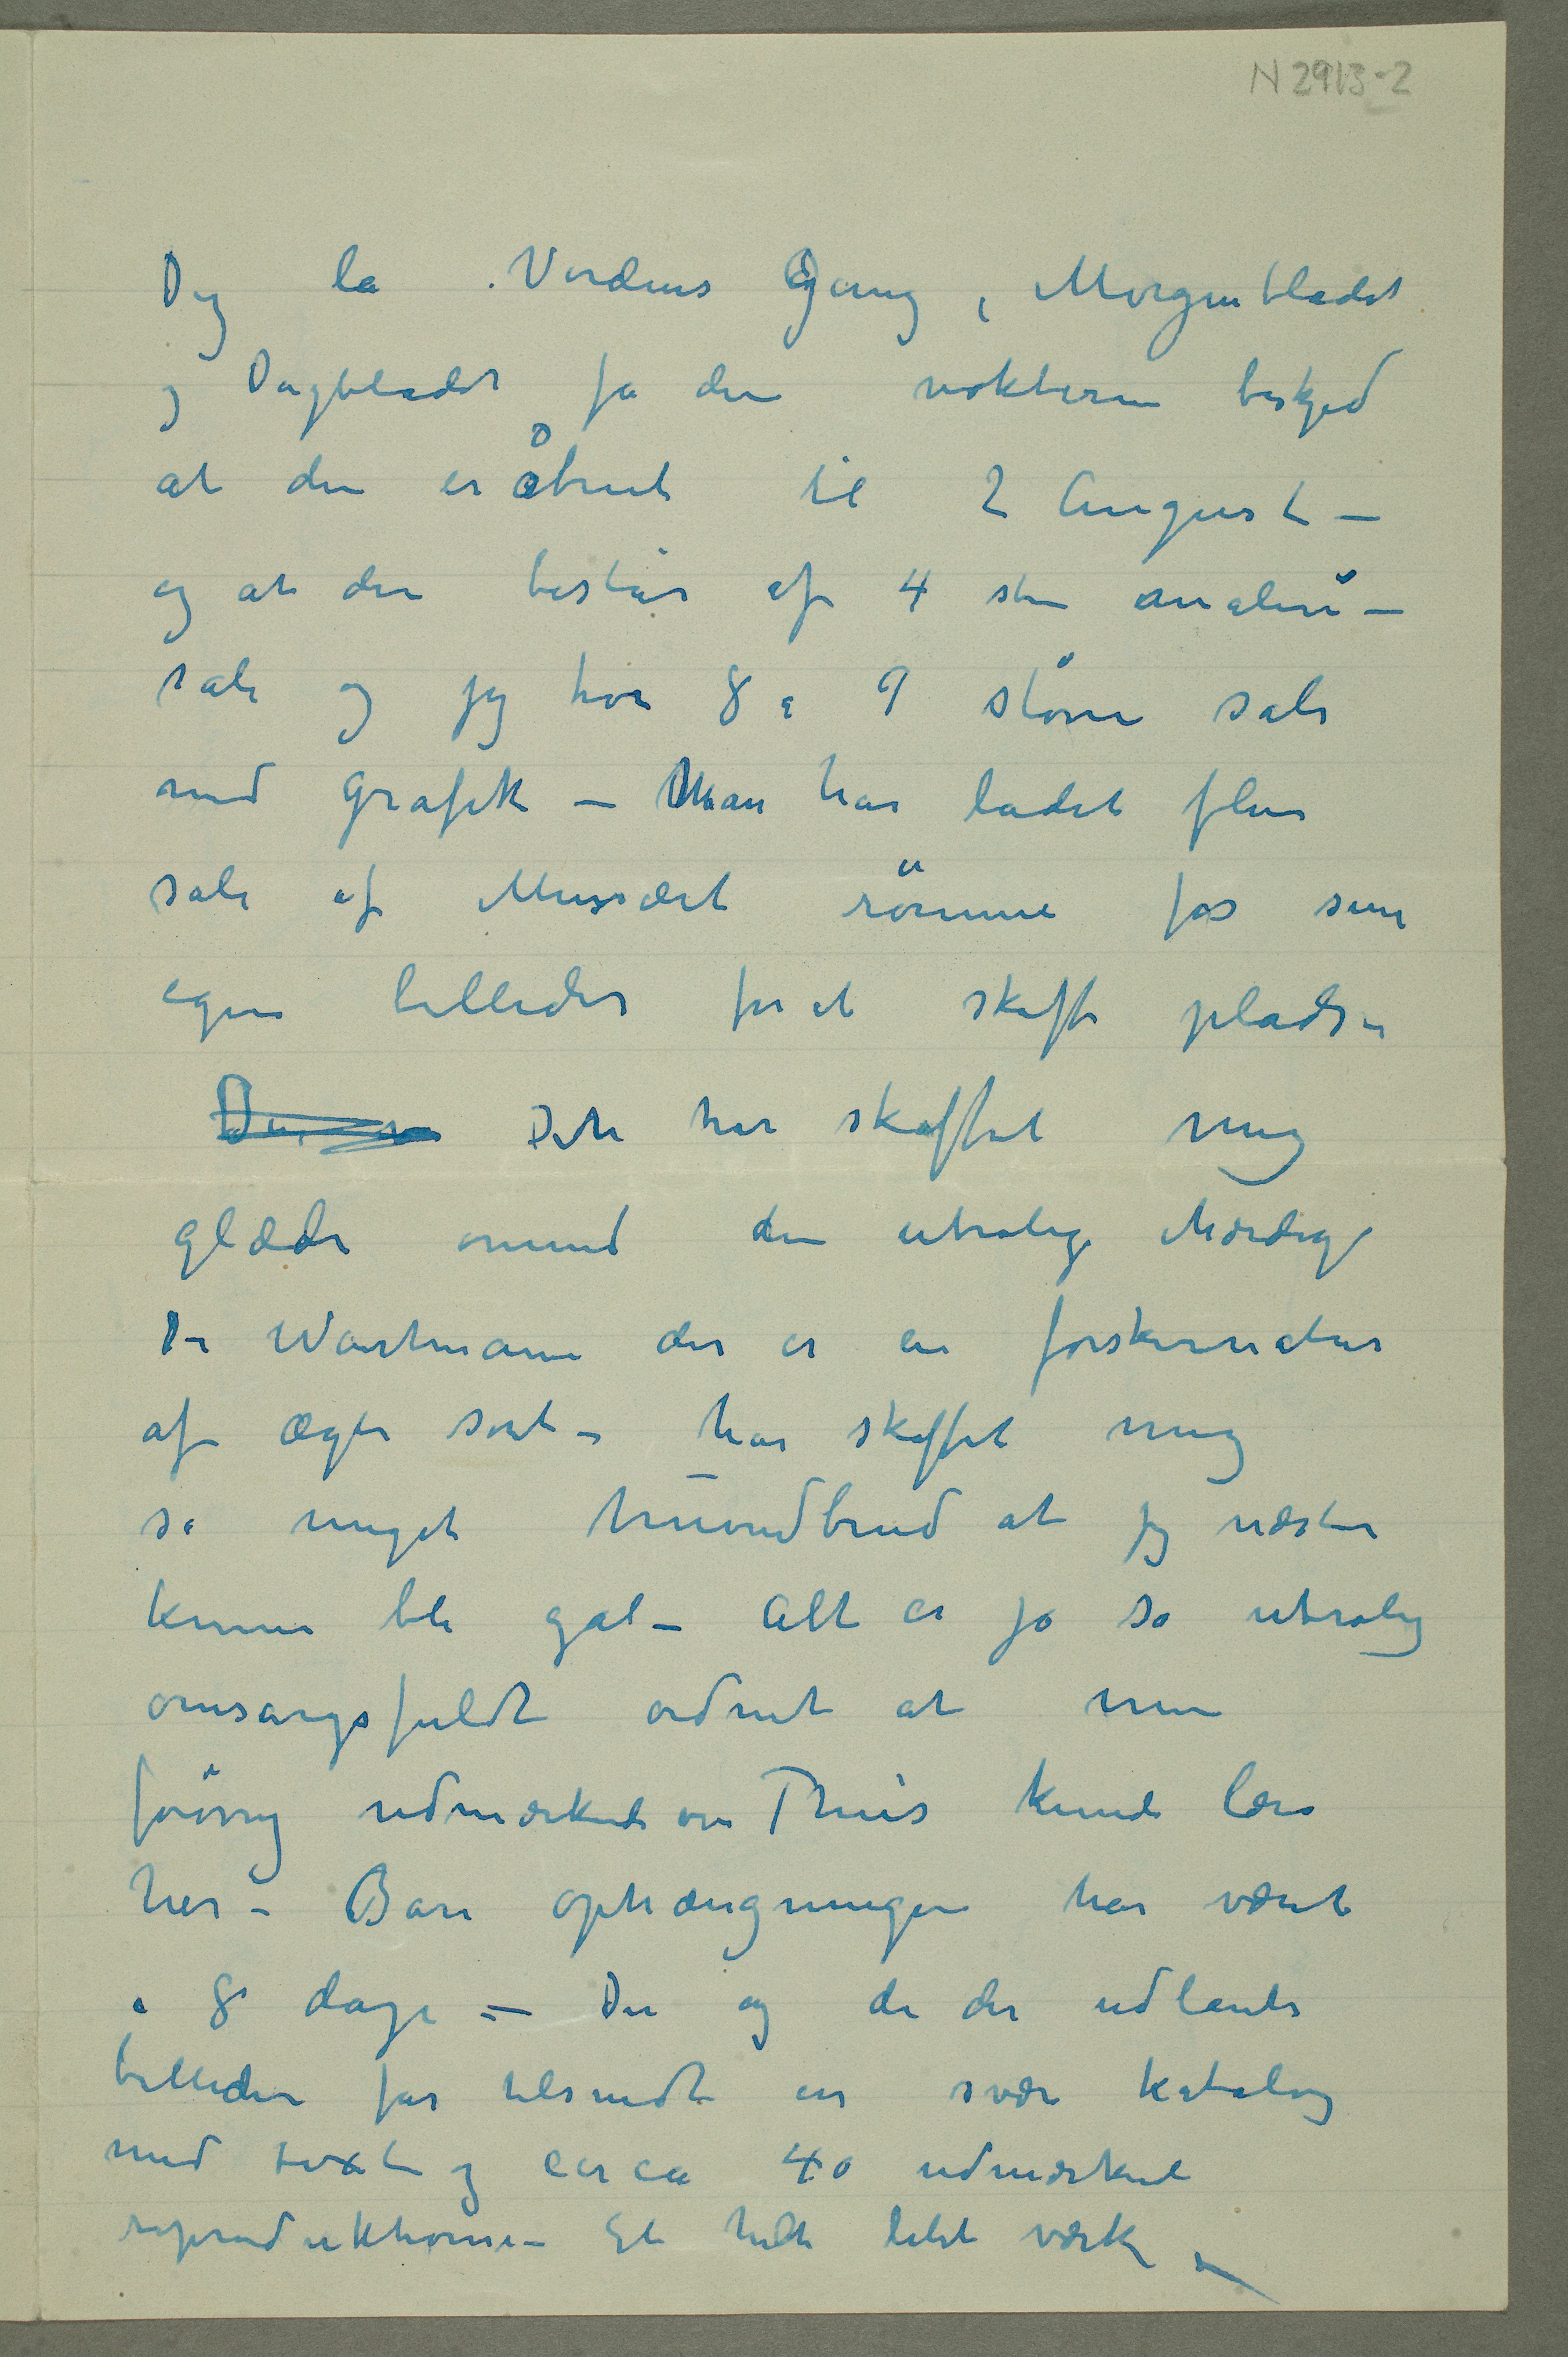 N 2913-2
Dig la Verdens Gang, Morgenbladet
og Dagbladet få den nøkterne beskjed
at den er åbnet til 2 August –
og at den består af 4 store maleri –
sale og jeg tror 8 a 9 större sale
med grafik – Man har ladet flere
sale af Musæet römme for sine
egne billeder for at skaffe plads –
Dette har skaffet mig
glæde men den utrolig
Dr Wartmann der er en forskernatur
af ægte sort – har skaffet mig
så meget hovedbrud at jeg næsten
kunne bli gal – Alt er jo så utrolig
omsorgsfuldt ordnet at min
forövrig udmærkede ven Thiis kunde lære
her – Bare ophængningen har været
a 8 dage – Du og de der udlånte
billeder får tilsendt en svær katalog
med text og circa 40 udmærkede
reproduktioner – Et helt lidet værk –